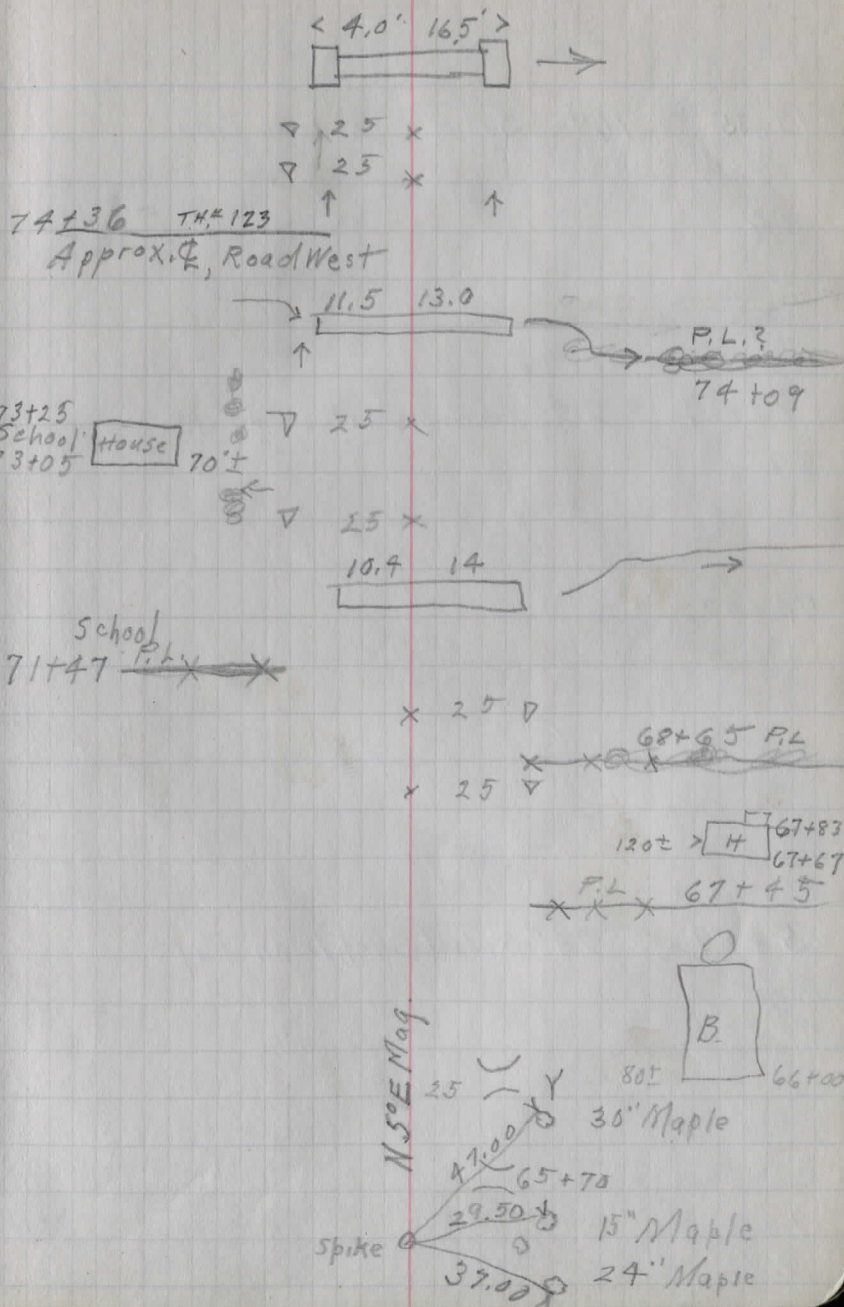 < 4.0' 16.5' >
25 ×
25 ×
74+36 T.H.# 123
Approx. ℄, Road West
11.5 13.0
P.L.?
74+09
73+25
School House 70'±
73+05
25 ×
25 ×
10.4 14
School
P.L.
71+47
× 25
68+65 P.L
× 25
67+83
120± > H
67+67
P.L 67+45
B.
N5°E Mag.
80± 66+00
25
30" Maple
47.00
65+70
29.50
15" Maple
Spike
37.00 24" Maple